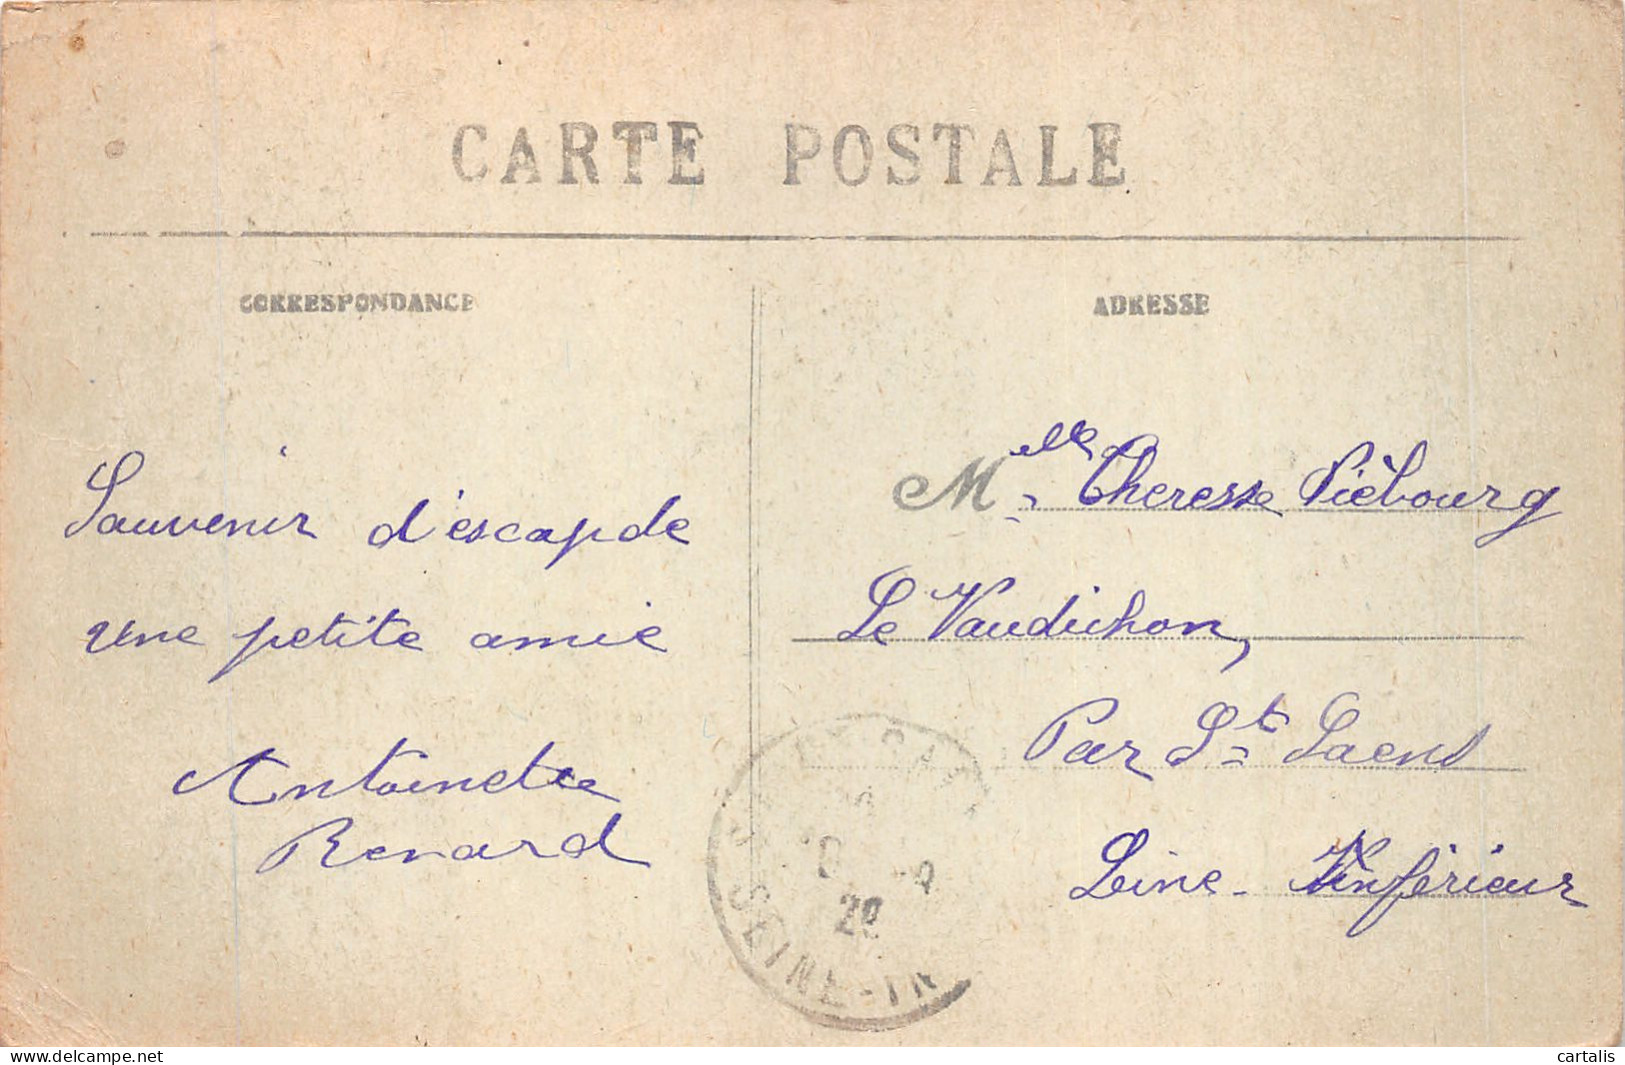 CARTE POSTALE
CORRESPONDANCE
ADRESSE
Souvenir d'escapde
une petite amie
Antoinette
Renard
Melle Theresse Pièbourg
Le Vaudichon,
Par St Saens
Seine Inférieur
28
SEINE-IN
cartalis
www.delcampe.net